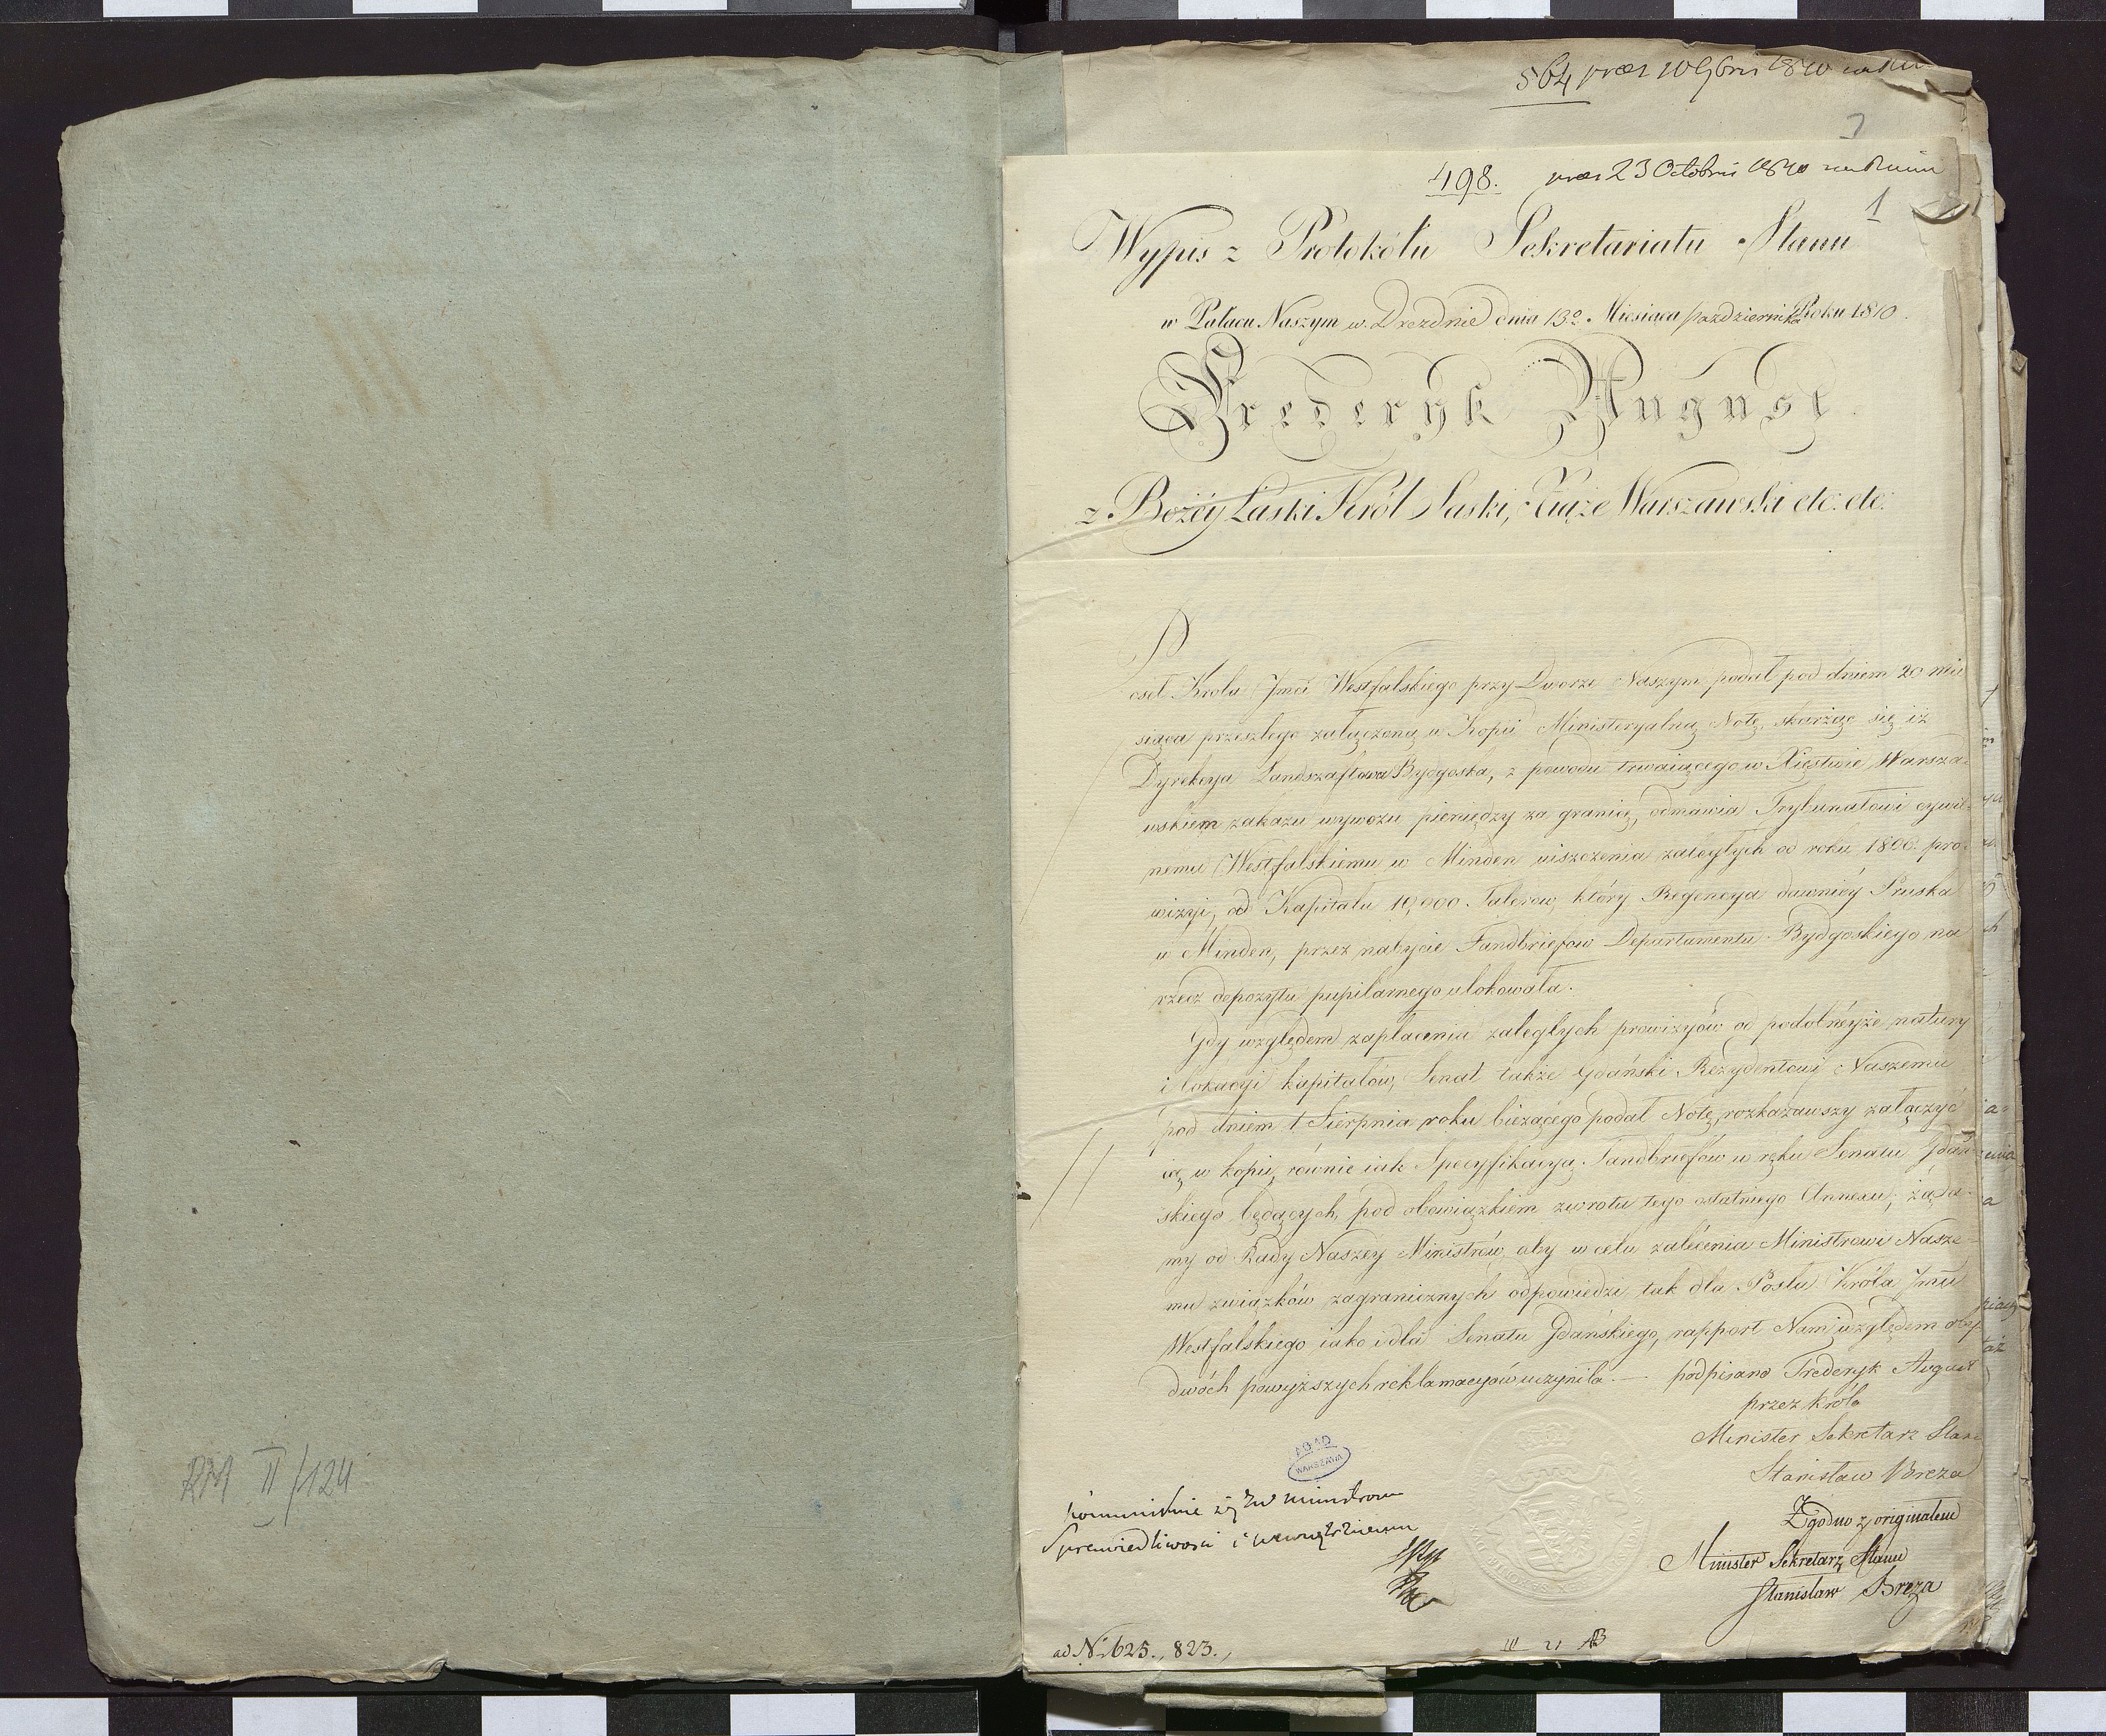 564 praes 10 9bris 1810
3
498. praes 23 Octobris 1810
1
Wypis z Protokółu Sekretariatu Stanu
w Pałacu Naszym w Dreznie dnia 13º Miesiąca października Roku 1810.
Fryderyk August
z Bożéy Łaski Król Saski, Xiąże Warszawski etc: etc:
Poseł Krola Jmci Westfalskiego przy Dworze Naszym, podał pod dniem 20 mie
siąca przeszłego załączoną w Kopii Ministeryalną Notę, skarżąc się iż
Dyrekcya Landszaftowa Bydgoska, z powodu trwaiącego w Xięstwie Warsza=
wskiem zakazu wywozu pieniędzy za granicę, odmawia Trybunałowi cywil=
nemu Westfalskiemu w Minden uiszczenia zaległych od roku 1806. pro=
wizyi, od Kapitału 10,000 Talerow, który Regencya dawniéy Pruska
w Minden, przez nabycie Fandbriefow Departamentu Bydgoskiego na
rzecz depozytu pupilarnego ulokowała.
Gdy względem zapłacenia zaległych prowizyów od podobnéyże natury
i lokacyi kapitałów, Senat także Gdański Rezydentowi Naszemu
pod dniem 1 Sierpnia roku bieżącego podał Notę, rozkazawszy załączyć
ią w kopii, równie iak Specyfikacyą Fandbriefów w ręku Senatu Gdań=
skiego będących, pod obowiązkiem zwrotu tego ostatniego Annexu; żąda=
my od Rady Naszey Ministrów, aby w celu zalécenia Ministrowi Nasze=
mu związków zagranicznych odpowiedzi tak dla Posła Króla Jmci
Westfalskiego iako i dla Senatu Gdańskiego, rapport Nam względem
dwóch powyższych reklamacyów uczyniła. — podpisano Frederyk August
przez Króla
Minister Sekretarz Stanu
Stanisław Breza
AGAD
WARSZAWA
Zgodno z originałem
Minister Sekretarz Stanu
Stanisław Breza
Sprawiedliwości i
ad Nº 625., 823.,
RM II/124